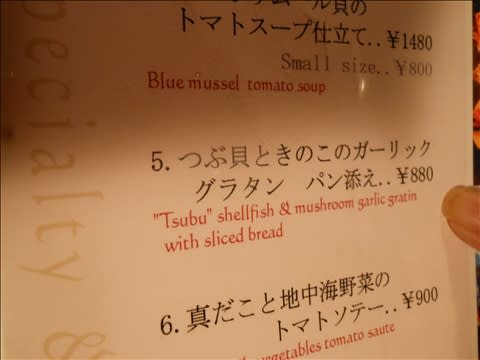 ール貝の
トマトスープ仕立て..¥1480
Small size..¥800
Blue mussel tomato soup
5. つぶ貝ときのこのガーリック
グラタン パン添え..¥880
"Tsubu" shellfish & mushroom garlic gratin
with sliced bread
6. 真だこと地中海野菜の
トマトソテー..¥900
vegetables tomato saute
pecialty &